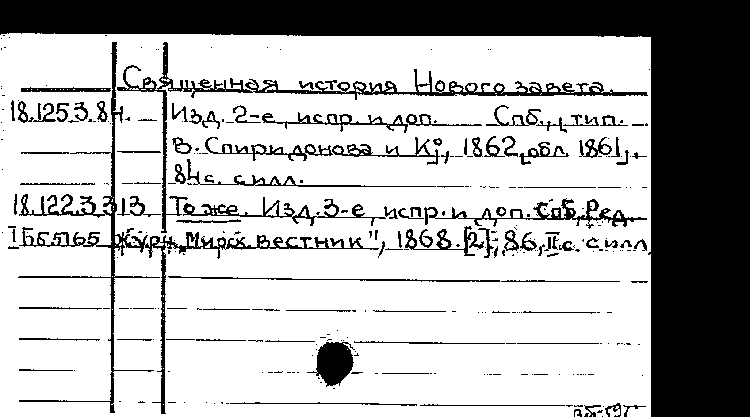 Священная история Нового завета.
18.125.3.84. Изд. 2-е, испр. и доп. Спб., тип.
В. Спиридонова и К°, 1862, [обл. 1861].
84 с. с илл.
18.122.3.313 То же. Изд. 3-е, испр. и доп. Спб, Ред.
журн. "Мирск. вестник", 1868. [2], 86, II с. с илл.